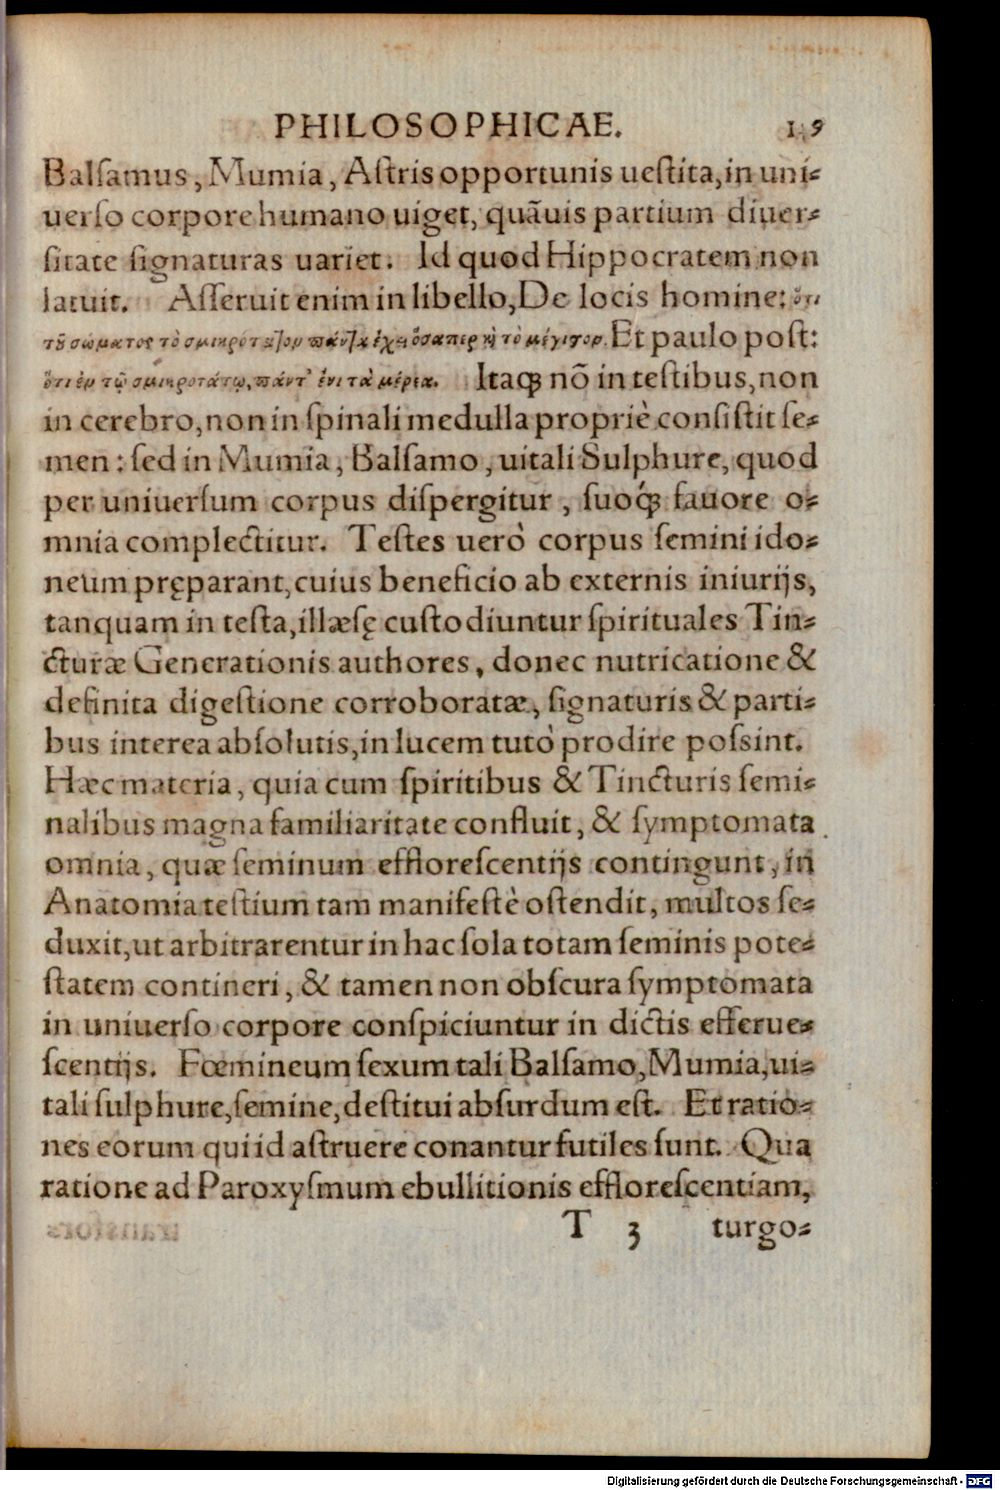 PHILOSOPHICAE. 1 9
Balſamus, Mumia, Aſtris opportunis ueſtita, in uni⸗
uerſo corpore humano uiget, quãuis partium diuer⸗
ſitate ſignaturas uariet. Id quod Hippocratem non
latuit. Aſſeruit enim in libello, De locis homine: ὅτι
τȣ͂ σώματος τὸ σμικρότατον πάντα ἔχει ὅσαπερ κὴ τὸ μέγιστον. Et paulo poſt:
ὅτι ἐν τῷ σμικροτάτῳ, πάντ' ἔνι τὰ μέρεα. Itaqꝫ nõ in teſtibus, non
in cerebro, non in ſpinali medulla propriè conſiſtit ſe⸗
men: ſed in Mumia, Balſamo, uitali Sulphure, quod
per uniuerſum corpus diſpergitur, ſuoqꝫ́ fauore o⸗
mnia complectitur. Teſtes uerò corpus ſemini ido⸗
neum pręparant, cuius beneficio ab externis iniurijs,
tanquam in teſta, illæſę cuſtodiuntur ſpirituales Tin⸗
cturæ Generationis authores, donec nutricatione &
definita digeſtione corroboratæ, ſignaturis & parti⸗
bus interea abſolutis, in lucem tutò prodire poſsint.
Hæc materia, quia cum ſpiritibus & Tincturis ſemi⸗
nalibus magna familiaritate confluit, & ſymptomata
omnia, quæ ſeminum effloreſcentijs contingunt, in
Anatomia teſtium tam manifeſtè oſtendit, multos ſe⸗
duxit, ut arbitrarentur in hac ſola totam ſeminis pote⸗
ſtatem contineri, & tamen non obſcura ſymptomata
in uniuerſo corpore conſpiciuntur in dictis efferue⸗
ſcentijs. Fœmineum ſexum tali Balſamo, Mumia, ui⸗
tali ſulphure, ſemine, deſtitui abſurdum eſt. Et ratio⸗
nes eorum qui id aſtruere conantur futiles ſunt. Qua
ratione ad Paroxyſmum ebullitionis effloreſcentiam,
T 3 turgo⸗
Digitalisierung gefördert durch die Deutsche Forschungsgemeinschaft - DFG